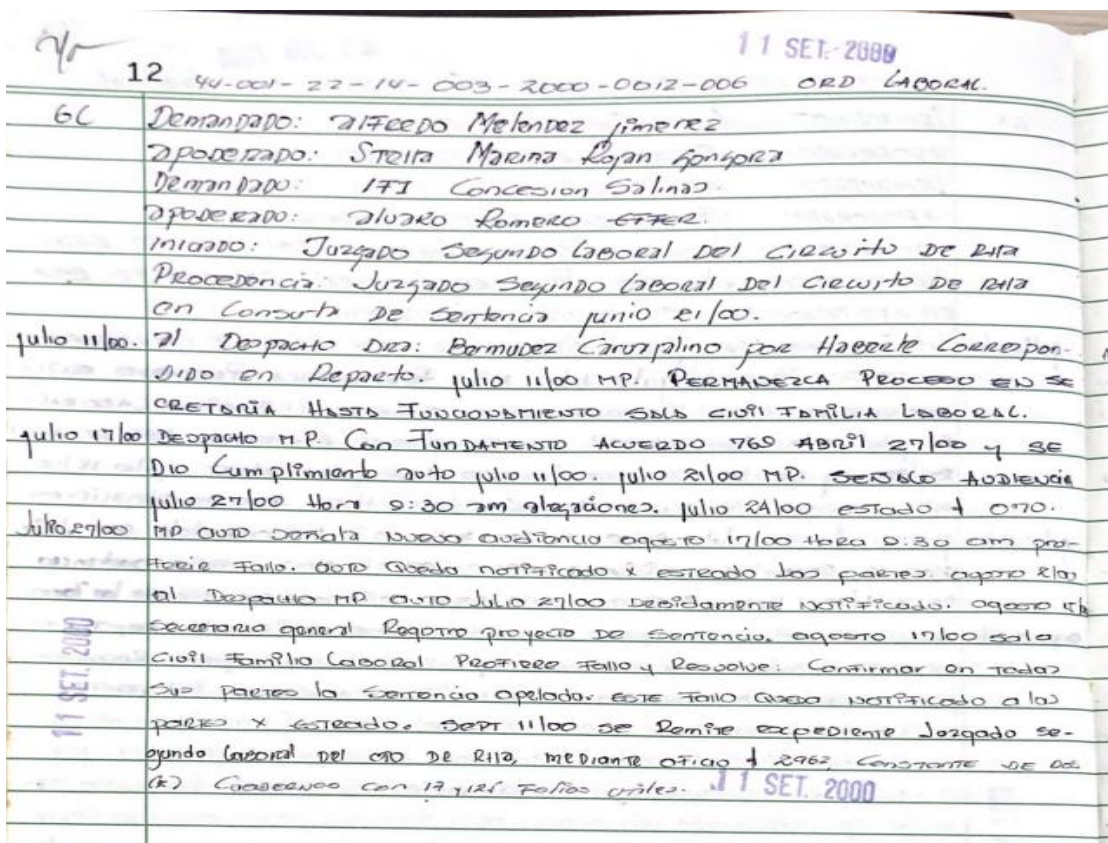 11 SET. 2000
12 44-001-22-14-003-2000-0012-006 ORD LABORAL.
6C Demandado: Alfredo Melendez Jimenez
Apoderado: Stella Marina Rojan Gongora
Demandado: IFI Concesion Salinas.
Apoderado: Alvaro Romero
Iniciado: Juzgado Segundo Laboral Del Circuito De Rha
Procedencia: Juzgado Segundo Laboral Del Circuito De Rha
en Consulta De Sentencia junio 21/00.
julio 11/00. al Despacho Dra: Bermudez Carvajalino por Haberle Correspon-
dido en Reparto. julio 11/00 MP. PERMANEZCA PROCESO EN SE
CRETARIA HASTA FUNCIONAMIENTO SALA CIVIL FAMILIA LABORAL.
julio 17/00 Despacho M.P. Con FUNDAMENTO ACUERDO 768 ABRIL 27/00 y SE
Dio Cumplimiento auto julio 11/00. julio 21/00 MP. SEÑALO AUDIENCIA
julio 27/00 Hora 9:30 am alegaciones. julio 24/00 estado # 070.
Julio 27/00 MP auto señala nueva audiencia agosto 17/00 Hora 9:30 am pro-
ferir Fallo. auto Queda notificado x estrado las partes agosto 2/00
al Despacho MP auto Julio 27/00 Debidamente Notificado. agosto
Secretaria general Registro proyecto De Sentencia. agosto 17/00 sala
Civil Familia Laboral Profiere Fallo y Resuelve: Confirmar en todas
sus partes la Sentencia apelada. Este Fallo Quedo Notificado a las
partes x estrado. Sept 11/00 se Remite expediente Juzgado se-
gundo Laboral Del cto De Rha, mediante oficio # 2962 Constante de dos
(2) Cuadernos con 17 y 121 Folios utiles. 11 SET. 2000
11 SET. 2000